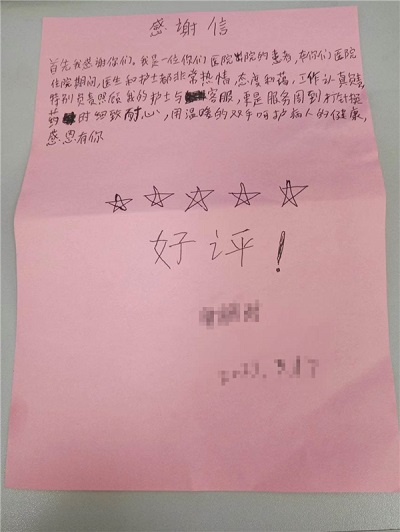 感谢信
首先我感谢你们。我是一位你们医院出院的患者,在你们医院
住院期间,医生和护士都非常热情,态度和蔼,工作认真
特别负责照顾我的护士与客服,更是服务周到打针
药时细致耐心,用温暖的双手呵护病人的健康,
感恩有你
☆☆☆☆☆
好评!